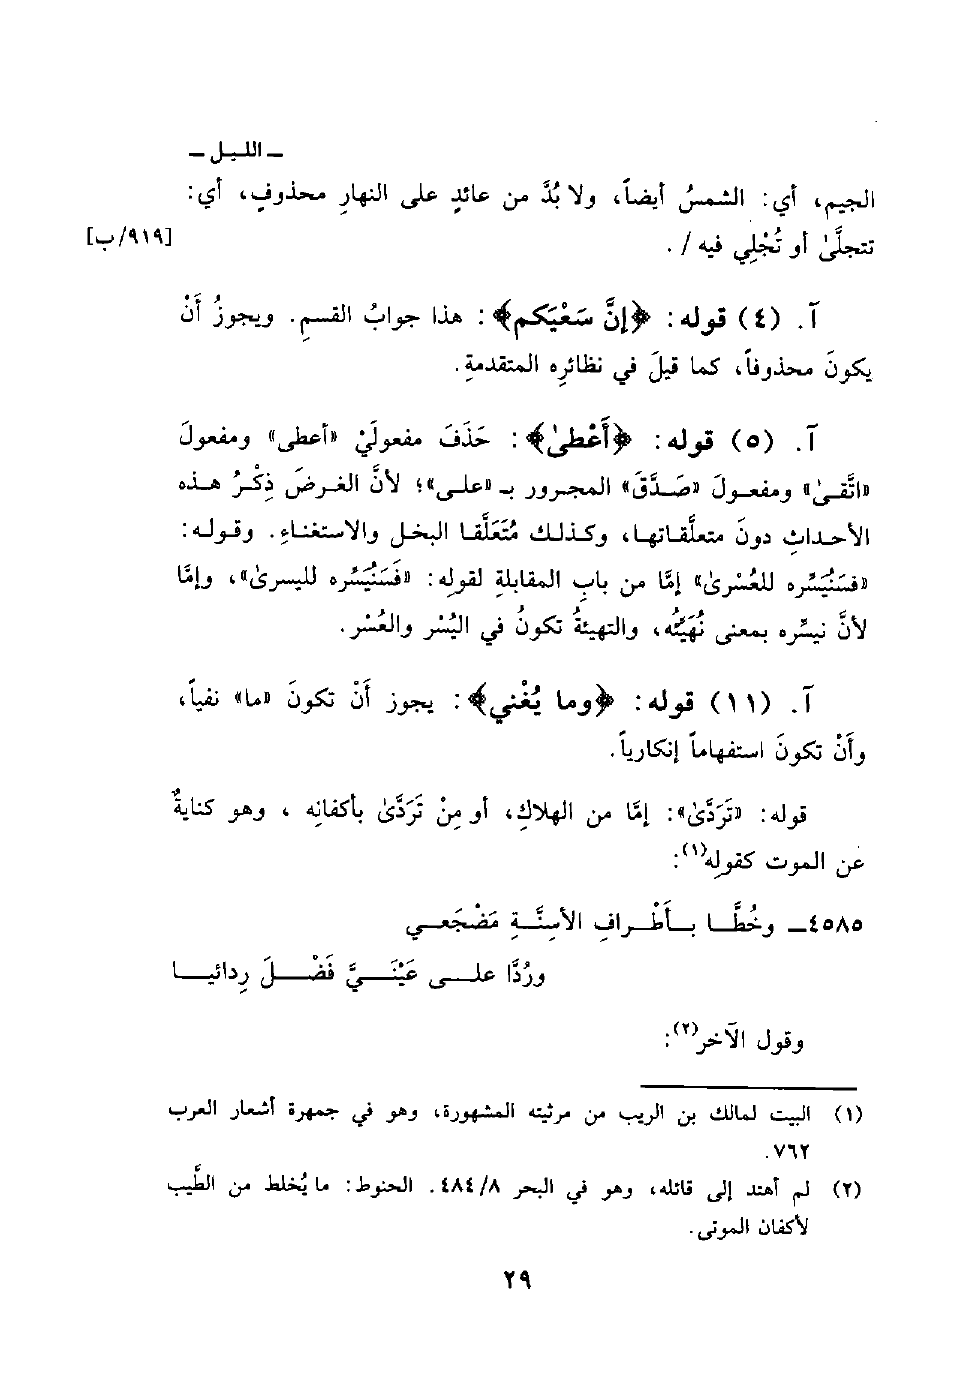 ـ الليـل ـ
الجيم، أي: الشمسُ أيضاً، ولا بُدَّ من عائدٍ على النهارِ محذوفٍ، أي:
تتجلَّىٰ أو تُجْلِي فيه / .
[٩١٩/ب]
آ. (٤) قوله: ﴿إنَّ سَعْيَكم﴾: هذا جوابُ القسمِ. ويجوزُ أَنْ
يكونَ محذوفاً، كما قيلَ في نظائرِه المتقدمةِ.
آ. (٥) قوله: ﴿أَعْطىٰ﴾: حَذَفَ مفعولَيْ «أعطى» ومفعولَ
«اتَّقىٰ» ومفعولَ «صَدَّقَ» المجرور بـ «على»؛ لأنَّ الغرضَ ذِكْرُ هذه
الأحداثِ دونَ متعلَّقاتها، وكذلك مُتَعَلَّقا البخلِ والاستغناءِ. وقوله:
«فسَنُيَسِّره للعُسْرىٰ» إمَّا من بابِ المقابلةِ لقولِه: «فَسَنُيَسِّره لليسرىٰ»، وإمَّا
لأنَّ نيسِّره بمعنى نُهَيِّئُه، والتهيئةُ تكونُ في اليُسْر والعُسْر.
آ. (١١) قوله: ﴿وما يُغْني﴾: يجوز أَنْ تكونَ «ما» نفياً،
وأَنْ تكونَ استفهاماً إنكارياً.
قوله: «تَرَدَّىٰ»: إمَّا من الهلاكِ، أو مِنْ تَرَدَّىٰ بأكفانِه ، وهو كنايةٌ
عن الموت كقولِه(١):
٤٥٨٥ـ وخُطَّـا بـأَطْـرافِ الأَسِنَّـةِ مَضْجَعـي
ورُدَّا علـى عَيْنَـيَّ فَضْـلَ رِدائيـا
وقول الآخر(٢):
(١) البيت لمالك بن الريب من مرثيته المشهورة، وهو في جمهرة أشعار العرب
٧٦٢.
(٢) لم أهتد إلى قائله، وهو في البحر ٤٨٤/٨. الحنوط: ما يُخلط من الطَّيب
لأكفان الموتى.
٢٩